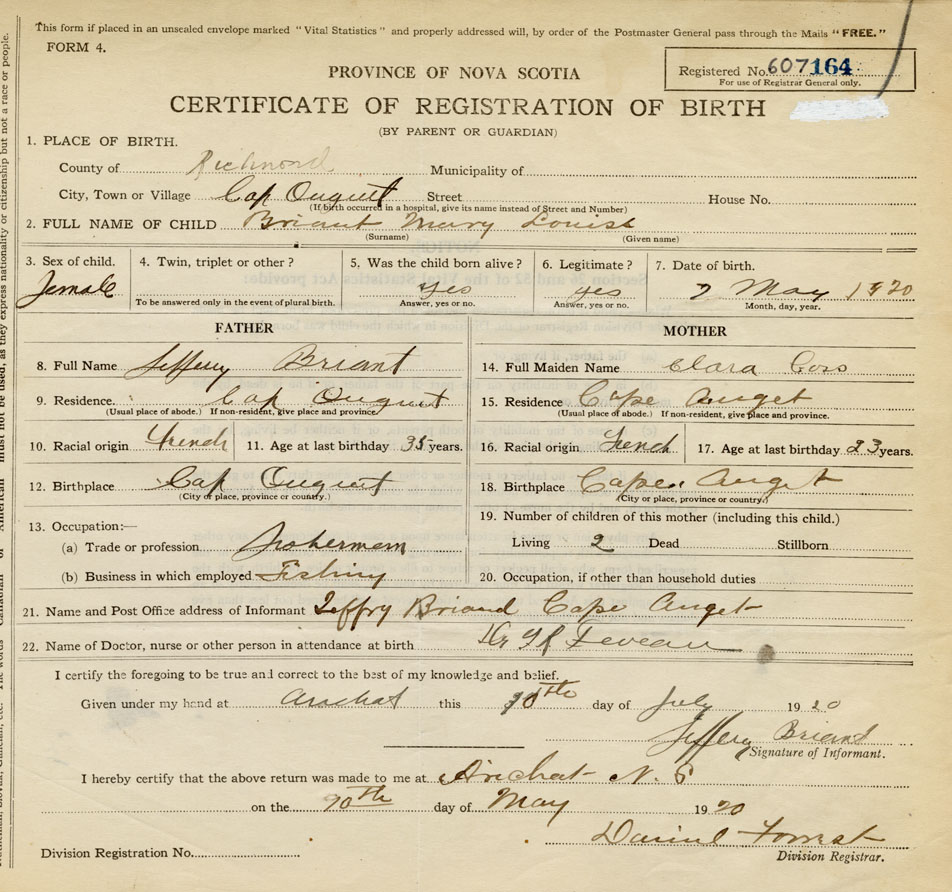 This form if placed in an unsealed envelope marked "Vital Statistics" and properly addressed will, by order of the Postmaster General pass through the Mails "FREE."
FORM 4.
Registered No. 607164
For use of Registrar General only.
PROVINCE OF NOVA SCOTIA
CERTIFICATE OF REGISTRATION OF BIRTH
(BY PARENT OR GUARDIAN)
1. PLACE OF BIRTH.
County of Richmond Municipality of
City, Town or Village Cap Ouguet Street House No.
(If birth occurred in a hospital, give its name instead of Street and Number)
2. FULL NAME OF CHILD Briant Mary Louise
(Surname) (Given name)
3. Sex of child. 4. Twin, triplet or other? 5. Was the child born alive? 6. Legitimate? 7. Date of birth.
Female yes yes 2 May 1920
To be answered only in the event of plural birth. Answer, yes or no. Answer, yes or no. Month, day, year.
FATHER MOTHER
8. Full Name Jeffery Briant 14. Full Maiden Name Clara Goss
9. Residence. Cap Ouguet 15. Residence Cape Auget
(Usual place of abode.) If non-resident, give place and province. (Usual place of abode.) If non-resident, give place and province.
10. Racial origin French 11. Age at last birthday 35 years. 16. Racial origin French 17. Age at last birthday 23 years.
12. Birthplace Cap Ouguet 18. Birthplace Cape Auget
(City or place, province or country.) (City or place, province or country.)
13. Occupation:— 19. Number of children of this mother (including this child.)
(a) Trade or profession Fisherman Living 2 Dead Stillborn
(b) Business in which employed Fishing 20. Occupation, if other than household duties
21. Name and Post Office address of Informant Jeffry Briand Cape Auget
22. Name of Doctor, nurse or other person in attendance at birth Deveau
I certify the foregoing to be true and correct to the best of my knowledge and belief.
Given under my hand at Arichat this day of July 1920
Jeffery Briant
Signature of Informant.
I hereby certify that the above return was made to me at Arichat N. S
on the day of May 1920
Daniel Forrest
Division Registration No. Division Registrar.